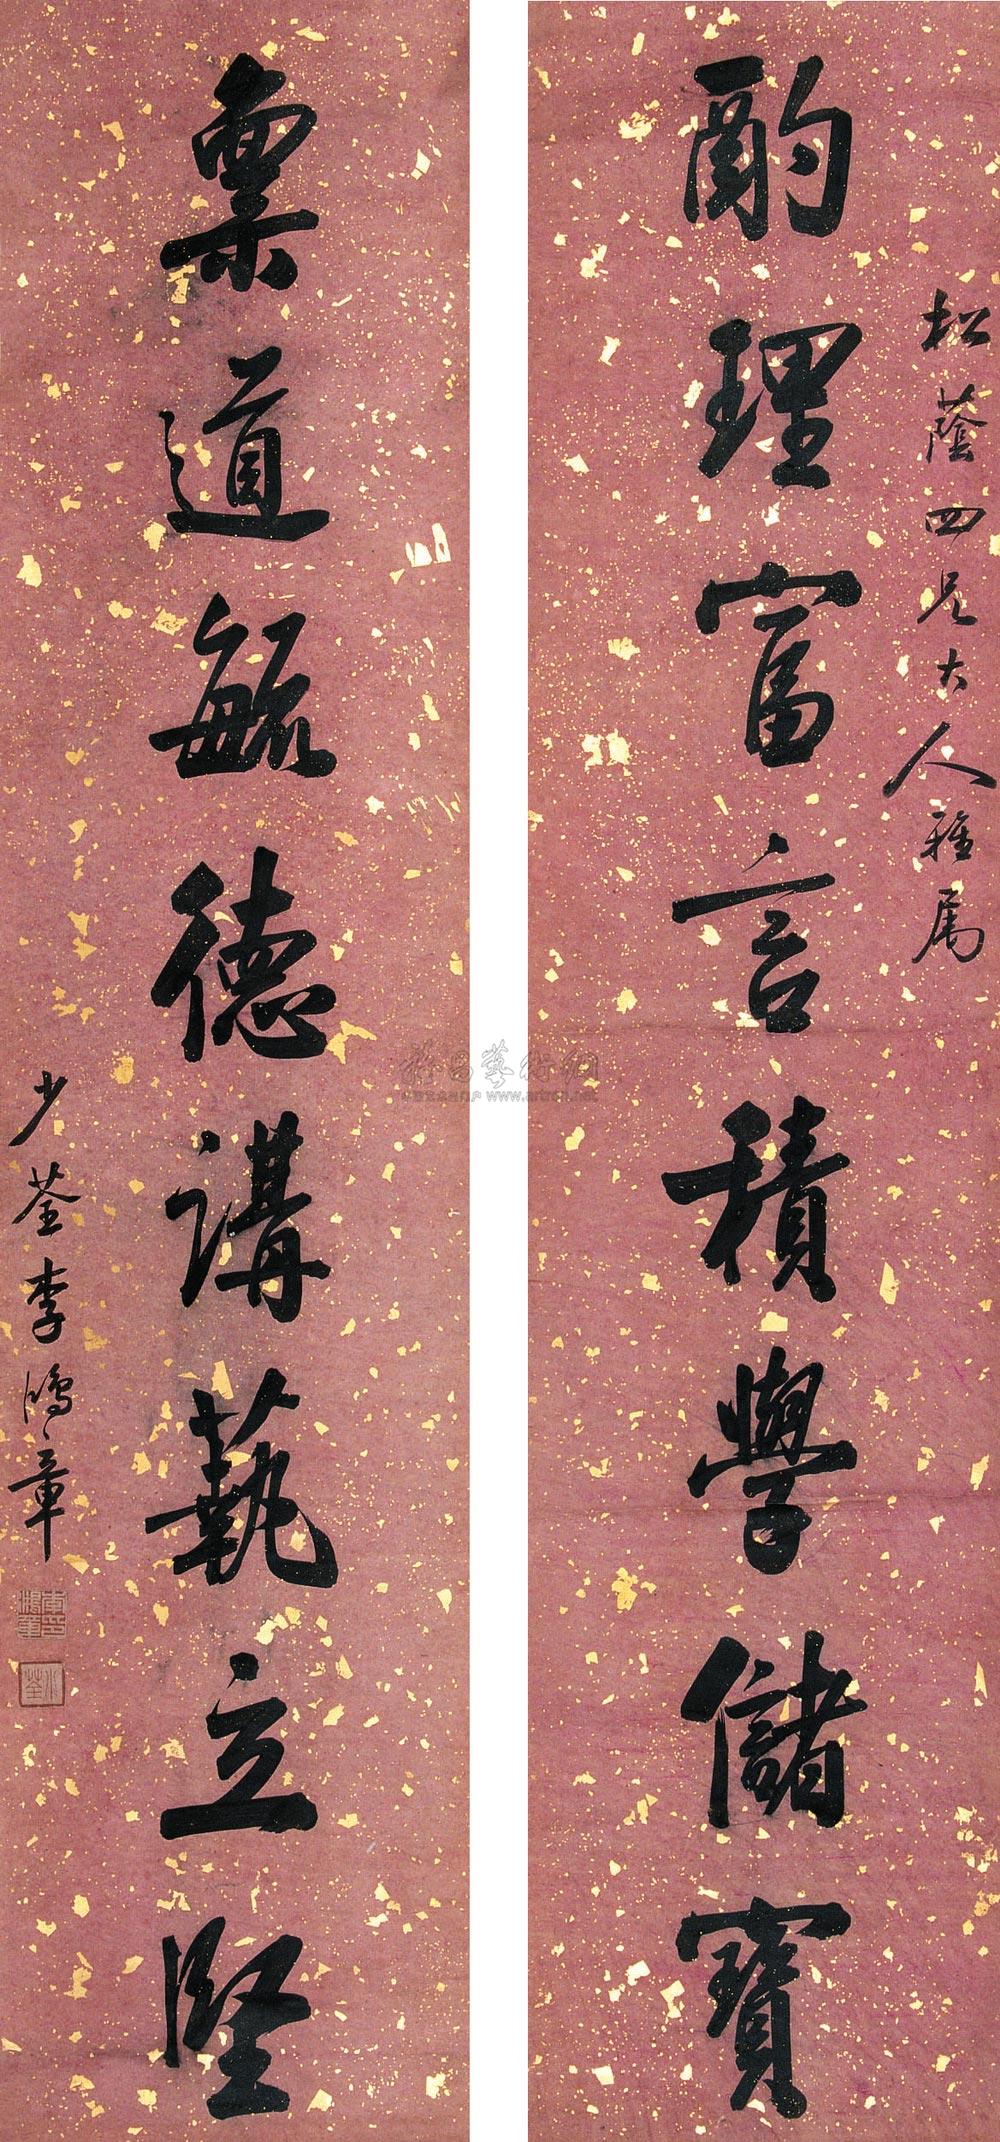 松蔭四兄大人雅属
酌理富言積學儲寶
稟道毓德講藝立堅
少荃李鴻章
李印鴻章
少荃
雅昌藝術網
www.artron.net